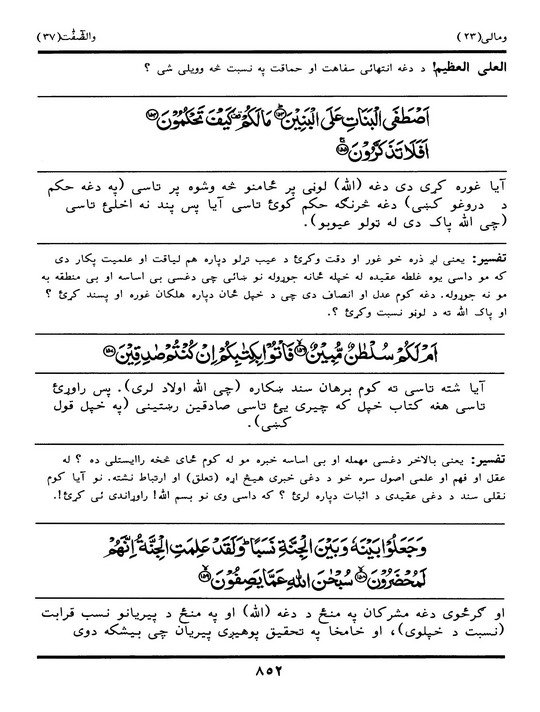 ومالی(۲۳) والصّٰفّٰت(۳۷)
العلی العظیم! د دغه انتهائی سفاهت او حماقت په نسبت څه وویلی شی ؟
اَصْطَفَى الْبَنَاتِ عَلَى الْبَنِيْنَ ۝۱۵۳ مَا لَكُمْ كَيْفَ تَحْكُمُوْنَ ۝۱۵۴
اَفَلَا تَذَكَّرُوْنَ ۝۱۵۵
آیا غوره کړی دی دغه (الله) لوڼی پر ځامنو څه وشوه پر تاسی (په دغه حکم
د دروغو کښی) دغه څرنګه حکم کوئ تاسی آیا پس پند نه اخلئ تاسی
(چی الله پاک دی له ټولو عیوبو).
تفسیر: یعنی لږ ذره خو غور او دقت وکړئ د عیب ټولو دپاره هم لیاقت او علمیت پکار دی
که مو داسی یوه غلطه عقیده له خپله ځانه جوړوله نو ښائی چی دغسی بی اساسه او بی منطقه به
مو نه جوړوله. دغه کوم عدل او انصاف دی چی د خپل ځان دپاره هلکان غوره او پسند کړئ ؟
او پاک الله ته د لوڼو نسبت وکړئ ؟.
اَمْ لَكُمْ سُلْطٰنٌ مُّبِيْنٌ ۝۱۵۶ فَاْتُوْا بِكِتٰبِكُمْ اِنْ كُنْتُمْ صٰدِقِيْنَ ۝۱۵۷
آیا شته تاسی ته کوم برهان سند ښکاره (چی الله اولاد لری). پس راوړئ
تاسی هغه کتاب خپل که چیری یئ تاسی صادقین رښتینی (په خپل قول
کښی).
تفسیر: یعنی بالاخر دغسی مهمله او بی اساسه خبره مو له کوم ځای څخه راایستلی ده ؟ له
عقل او فهم او علمی اصول سره خو د دغی خبری هیڅ اړه (تعلق) او ارتباط نشته. نو آیا کوم
نقلی سند د دغی عقیدی د اثبات دپاره لرئ ؟ که داسی وی نو بسم الله! راوړاندی ئی کړئ!.
وَجَعَلُوْا بَيْنَهٗ وَبَيْنَ الْجِنَّةِ نَسَبًا ؕ وَلَقَدْ عَلِمَتِ الْجِنَّةُ اِنَّهُمْ
لَمُحْضَرُوْنَ ۝۱۵۸ سُبْحٰنَ اللّٰهِ عَمَّا يَصِفُوْنَ ۝۱۵۹
او ګرځوی دغه مشرکان په منځ د دغه (الله) او په منځ د پیریانو نسب قرابت
(نسبت د خپلوی)، او خامخا په تحقیق پوهیږی پیریان چی بیشکه دوی
۸۵۲